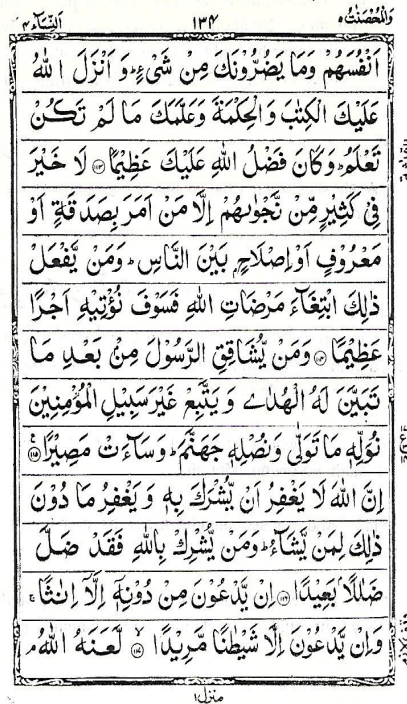 وَالْمُحْصَنٰتُ ٥ ١٣٤ اَلنِّسَآء ٤
اَنْفُسَهُمْ وَمَا يَضُرُّوْنَكَ مِنْ شَىْءٍ ؕ وَ اَنْزَلَ اللّٰهُ
عَلَيْكَ الْكِتٰبَ وَ الْحِكْمَةَ وَعَلَّمَكَ مَا لَمْ تَكُنْ
تَعْلَمُ ؕ وَكَانَ فَضْلُ اللّٰهِ عَلَيْكَ عَظِيْمًا ﴿١١٣﴾ لَا خَيْرَ
فِىْ كَثِيْرٍ مِّنْ نَّجْوٰىهُمْ اِلَّا مَنْ اَمَرَ بِصَدَقَةٍ اَوْ
مَعْرُوْفٍ اَوْ اِصْلَاحٍۭ بَيْنَ النَّاسِ ؕ وَمَنْ يَّفْعَلْ
ذٰلِكَ ابْتِغَآءَ مَرْضَاتِ اللّٰهِ فَسَوْفَ نُؤْتِيْهِ اَجْرًا
عَظِيْمًا ﴿١١٤﴾ وَمَنْ يُّشَاقِقِ الرَّسُوْلَ مِنْۢ بَعْدِ مَا
تَبَيَّنَ لَهُ الْهُدٰى وَ يَتَّبِعْ غَيْرَ سَبِيْلِ الْمُؤْمِنِيْنَ
نُوَلِّهٖ مَا تَوَلّٰى وَنُصْلِهٖ جَهَنَّمَ ؕ وَسَآءَتْ مَصِيْرًا ﴿١١٥﴾ ع
اِنَّ اللّٰهَ لَا يَغْفِرُ اَنْ يُّشْرَكَ بِهٖ وَ يَغْفِرُ مَا دُوْنَ
ذٰلِكَ لِمَنْ يَّشَآءُ ؕ وَمَنْ يُّشْرِكْ بِاللّٰهِ فَقَدْ ضَلَّ
ضَلٰلًاۢ بَعِيْدًا ﴿١١٦﴾ اِنْ يَّدْعُوْنَ مِنْ دُوْنِهٖۤ اِلَّاۤ اِنٰثًا ۚ
وَاِنْ يَّدْعُوْنَ اِلَّا شَيْطٰنًا مَّرِيْدًا ﴿١١٧﴾ لَّعَنَهُ اللّٰهُ ۘ
منزل ١